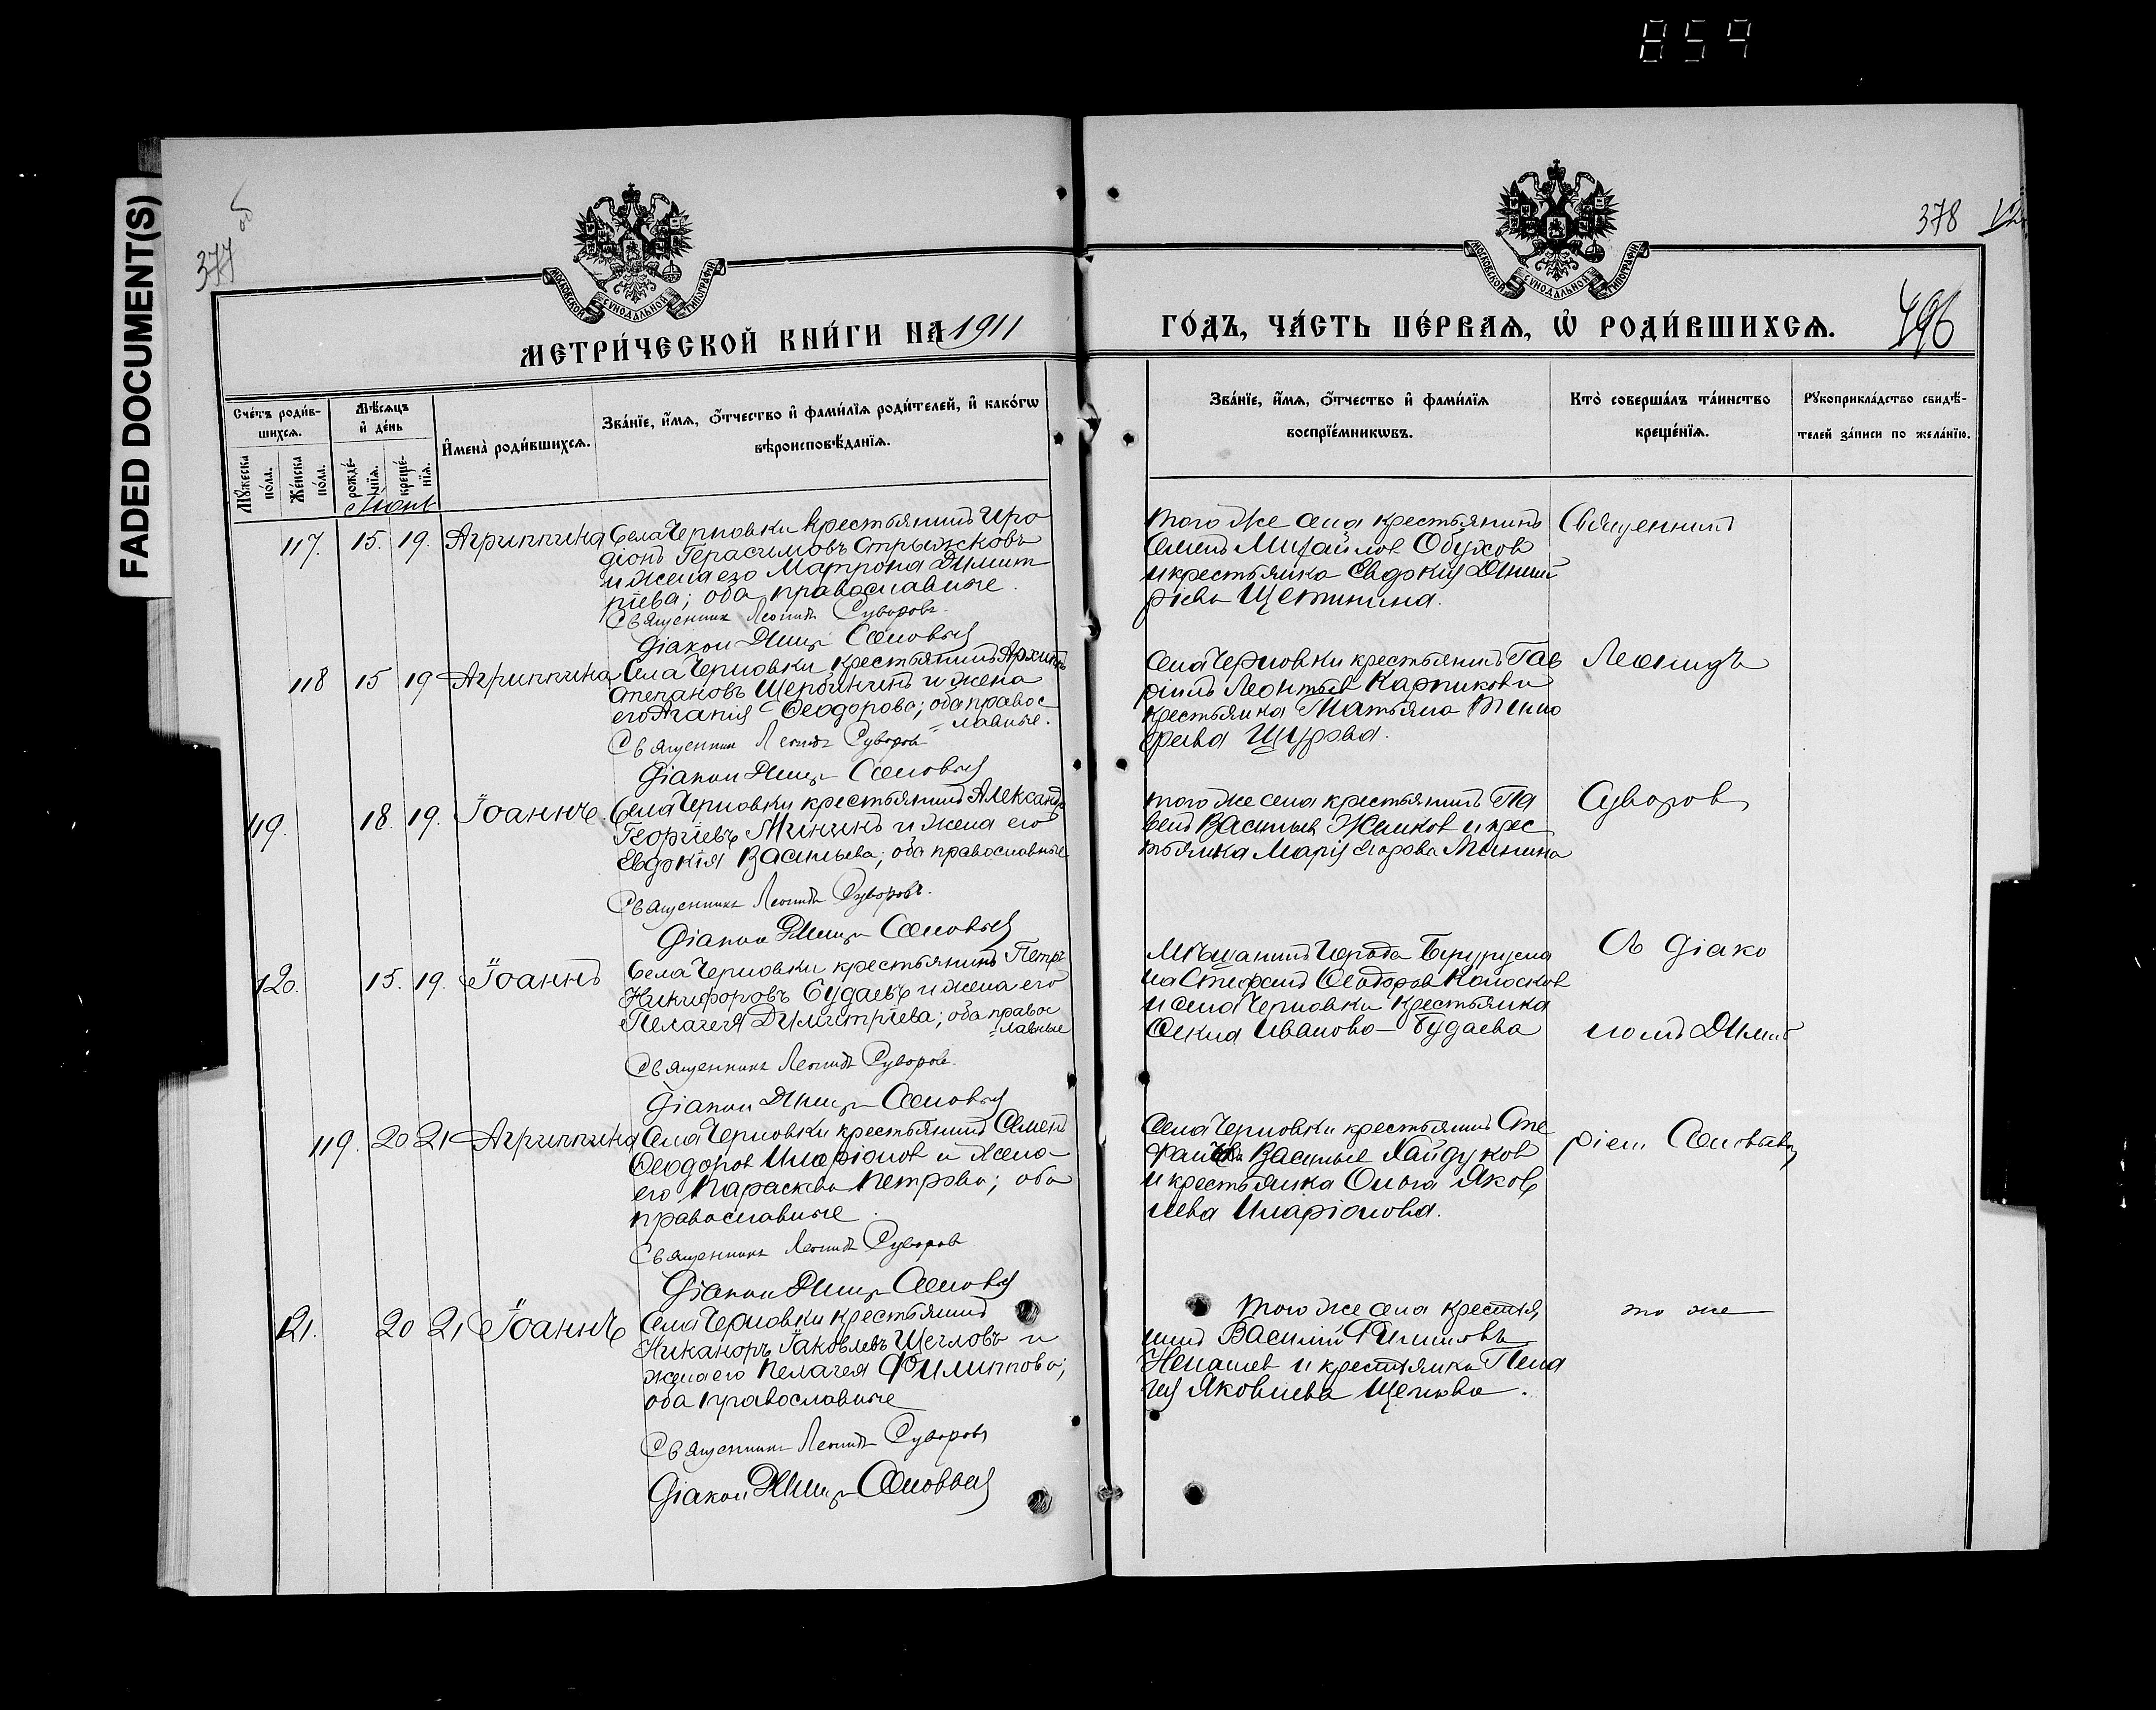 859
FADED DOCUMENT(S)
377 об
378
496
МОСКОВСКОЙ СѴНОДАЛЬНОЙ ТИПОГРАФІИ
МОСКОВСКОЙ СѴНОДАЛЬНОЙ ТИПОГРАФІИ
МЕТРИ́ЧЕСКОЙ КНИ́ГИ НА 1911
ГО́ДЪ, ЧА́СТЬ ПЕ́РВАѦ, Ѡ҆ РОДИ́ВШИХСѦ.
Сче́тъ роди́в-
шихсѧ.
Мꙋ́жеска
по́ла.
Же́нска
по́ла.
Мѣ́сѧцъ
и҆ де́нь
рожде́-
нїѧ.
креще́-
нїѧ.
И҆мена̀ роди́вшихсѧ.
Зва́нїе, и҆́мѧ, ѻ҆́тчество и҆ фами́лїѧ роди́телей, и҆ како́гѡ
вѣроисповѣ́данїѧ.
Зва́нїе, и҆́мѧ, ѻ҆́тчество и҆ фами́лїѧ
воспрїе́мникѡвъ.
Кто̀ соверша́лъ та́инство
креще́нїѧ.
Рꙋкоприкла́дство свидѣ́-
телей за́писи по жела́нїю.
Іюнь
117. 15. 19. Агриппина Села Черновки крестьянинъ Иро
діонъ Герасимовъ Стрыжковъ
и жена его Матрона Димит
ріева; оба православные.
Священник Леонидъ Суворовъ.
Діакон Димитр Соловьев
того же села крестьянинъ
Семенъ Михайлов Обухов
и крестьянка Евдокия Димит
ріева Щетинина.
Священникъ
118 15 19 Агриппина Села Черновки крестьянинъ Архипъ
Степановъ Щербининъ и жена
его Агапія Ѳеодорова; оба правос
лавные.
Священник Леонидъ Суворовъ
Діакон Димитр Соловьев
Села Черновки крестьянинъ Гав
ріилъ Леонтьев Карпиков и
крестьянка Татьяна Тимо
феева Щурова.
Леонидъ
119. 18. 19. Іоаннъ. Села Черновки крестьянинъ Александръ
Георгіевъ Мининъ и жена его
Евдокія Васильева; оба православные
Священникъ Леонидъ Суворовъ.
Діакон Димитр Соловьев
того же села крестьянинъ Па
велъ Васильев Жилков и крес
тьянка Марія Егорова Минина
Суворов
120. 15. 19. Іоаннъ Села Черновки крестьянинъ Петръ
Никифоровъ Будаевъ и жена его
Пелагея Димитріева; оба правос
лавные
Священникъ Леонидъ Суворов.
Діакон Димитр Соловьев
Мѣщанинъ города Бугурусла
на Стефанъ Ѳеодоров Колосков
и села Черновки крестьянка
Иванова Будаева
съ діако
номъ Димит
119. 20 21 Агриппина Села Черновки крестьянинъ Семенъ
Ѳеодоров Иларіонов и жена
его Параскева Петрова; оба
православные.
Священникъ Леонидъ Суворов
Діакон Димитр Соловьев
Села Черновки крестьянинъ Сте
фан Васильев Хайдуков
и крестьянка Ольга Яков
лева Иларіонова.
ріем Соловьевы
121. 20 21 Іоаннъ Села Черновки крестьянинъ
Никаноръ Іаковлевъ Щегловъ и
жена его Пелагея Филиппова;
оба православные
Священникъ Леонидъ Суворовъ
Діакон Димитр Соловьев
того же села крестья
нинъ Василій Филиповъ
Ненашев и крестьянка Пела
гея Яковлева Щеглова.
то же